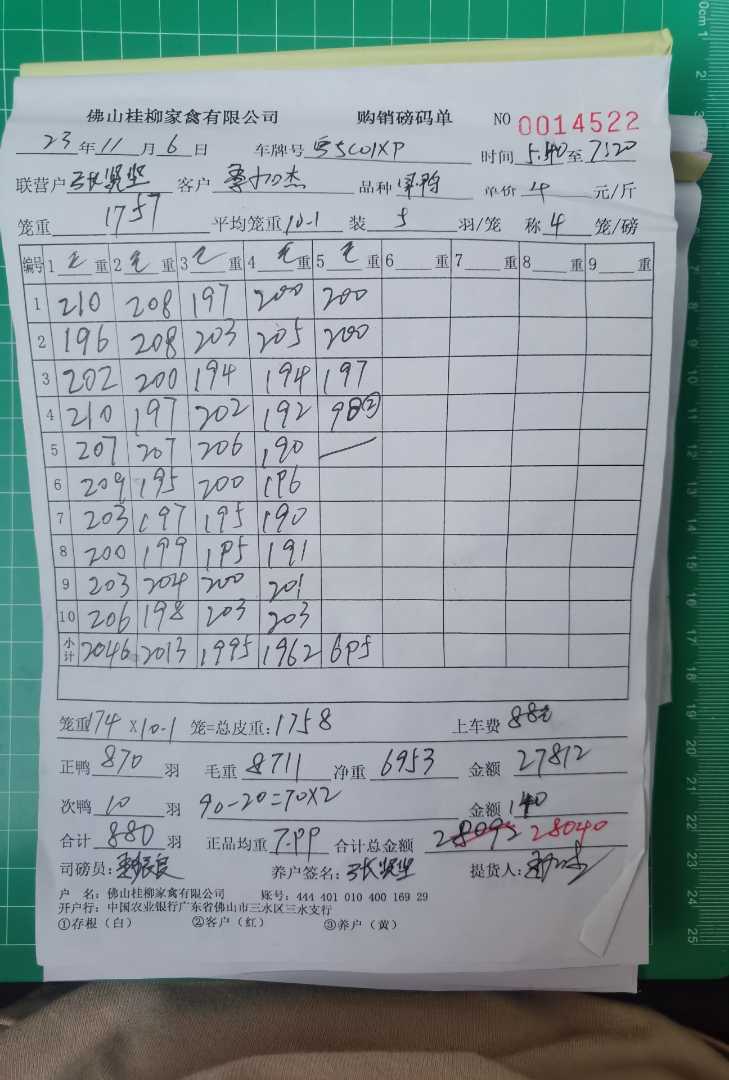 佛山桂柳家禽有限公司 购销磅码单 NO 0014522
23年11月6日 车牌号 粤SC01XP 时间 5.40至7:20
联营户 张贤坚 客户 品种 单价 4 元/斤
笼重 1757 平均笼重 10-1 装 5 羽/笼 称 4 笼/磅
编号 1 毛 重 2 毛 重 3 毛 重 4 毛 重 5 毛 重 6 重 7 重 8 重 9 重
1 210 208 197 200 200
2 196 208 203 205 200
3 202 200 194 194 197
4 210 197 202 192 98②
5 207 207 206 190
6 209 195 200 196
7 203 197 195 190
8 200 199 195 191
9 203 204 200 201
10 206 198 203 203
小计 2046 2013 1995 1962 695
笼重174×10-1 笼=总皮重:1758 上车费 88元
正鸭 870 羽 毛重 8711 净重 6953 金额 27812
次鸭 10 羽 90-20=70×2 金额 140
合计 880 羽 正品均重 7.99 合计总金额 28092 28040
司磅员: 养户签名: 张贤坚 提货人:
户 名: 佛山桂柳家禽有限公司 账号: 444 401 010 400 169 29
开户行: 中国农业银行广东省佛山市三水区三水支行
①存根（白） ②客户（红） ③养户（黄）
0cm 1 2 10 11 12 13 14 15 16 17 18 19 20 21 22 23 24 25